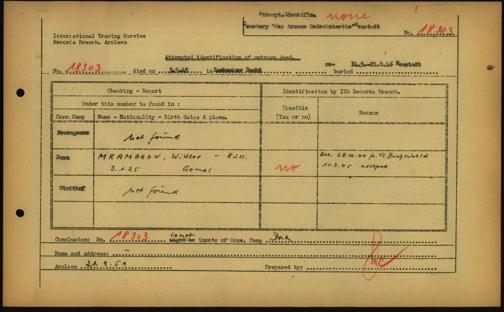 Attempt.Identific. none
Cemetery "Cap Arcona Gedenkstätte" Neustadt
International Tracing Service
Records Branch, Arolsen
No. 18303
Attempted identification of unknown dead.
No. 18303 died on 3.5.45 in Lübecker Bucht re-buried 14.9.-21.8.46 Neustadt
Checking - Report
Identification by ITS Records Branch.
Under this number is found :
Possible
(Yes or no)
Reason
Conc.Camp
Name - Nationality - Birth dates & place.
Neuengamme
not found
Dora
MRAMAROW, - Russ.
3.1.25 Gomel
no
28.10.44 fr. Buchenwald
11.3.45 escaped
Stutthof
not found
Conclusion: No. 18303 is not might be inmate of Conc. Camp Dora
Name and address: -
Arolsen
Prepared by: